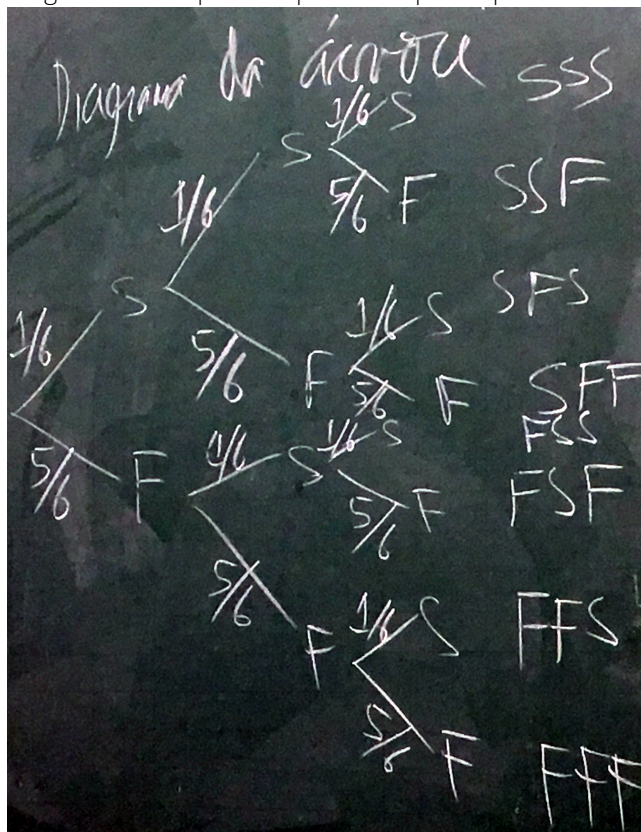 Diagrama da árvore
SSS
1/6 S
S
5/6 F
SSF
1/6
S
SFS
1/6 S
1/6
5/6
F
5/6 F
SFF
FSS
1/6 S
S
5/6 F
FSF
5/6
F
5/6
1/6 S
FFS
F
5/6 F
FFF